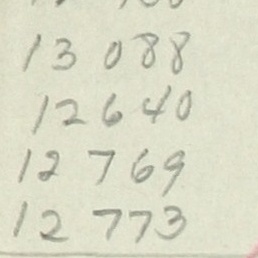 13 088
12 640
12 769
12 773